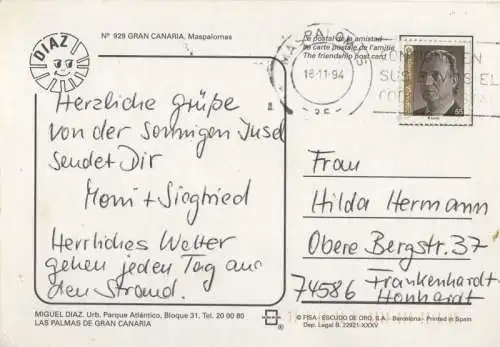 Nº 929 GRAN CANARIA, Maspalomas
DIAZ
La postal de la amistad
La carte postale de l'amitié
The friendship post card
MASPALOMAS
16-11-94
65
Herzliche Grüße
von der sonnigen Insel
sendet Dir
Moni + Siegfried
Herrliches Wetter
gehen jeden Tag an
den Strand.
Frau
Hilda Hermann
Obere Bergstr. 37
74586 Frankenhardt-
Honhardt
MIGUEL DIAZ. Urb. Parque Atlántico, Bloque 31, Tel. 20 00 80
LAS PALMAS DE GRAN CANARIA
®
© FISA - ESCUDO DE ORO, S.A. - Barcelona - Printed in Spain
Dep. Legal B. 22921-XXXV